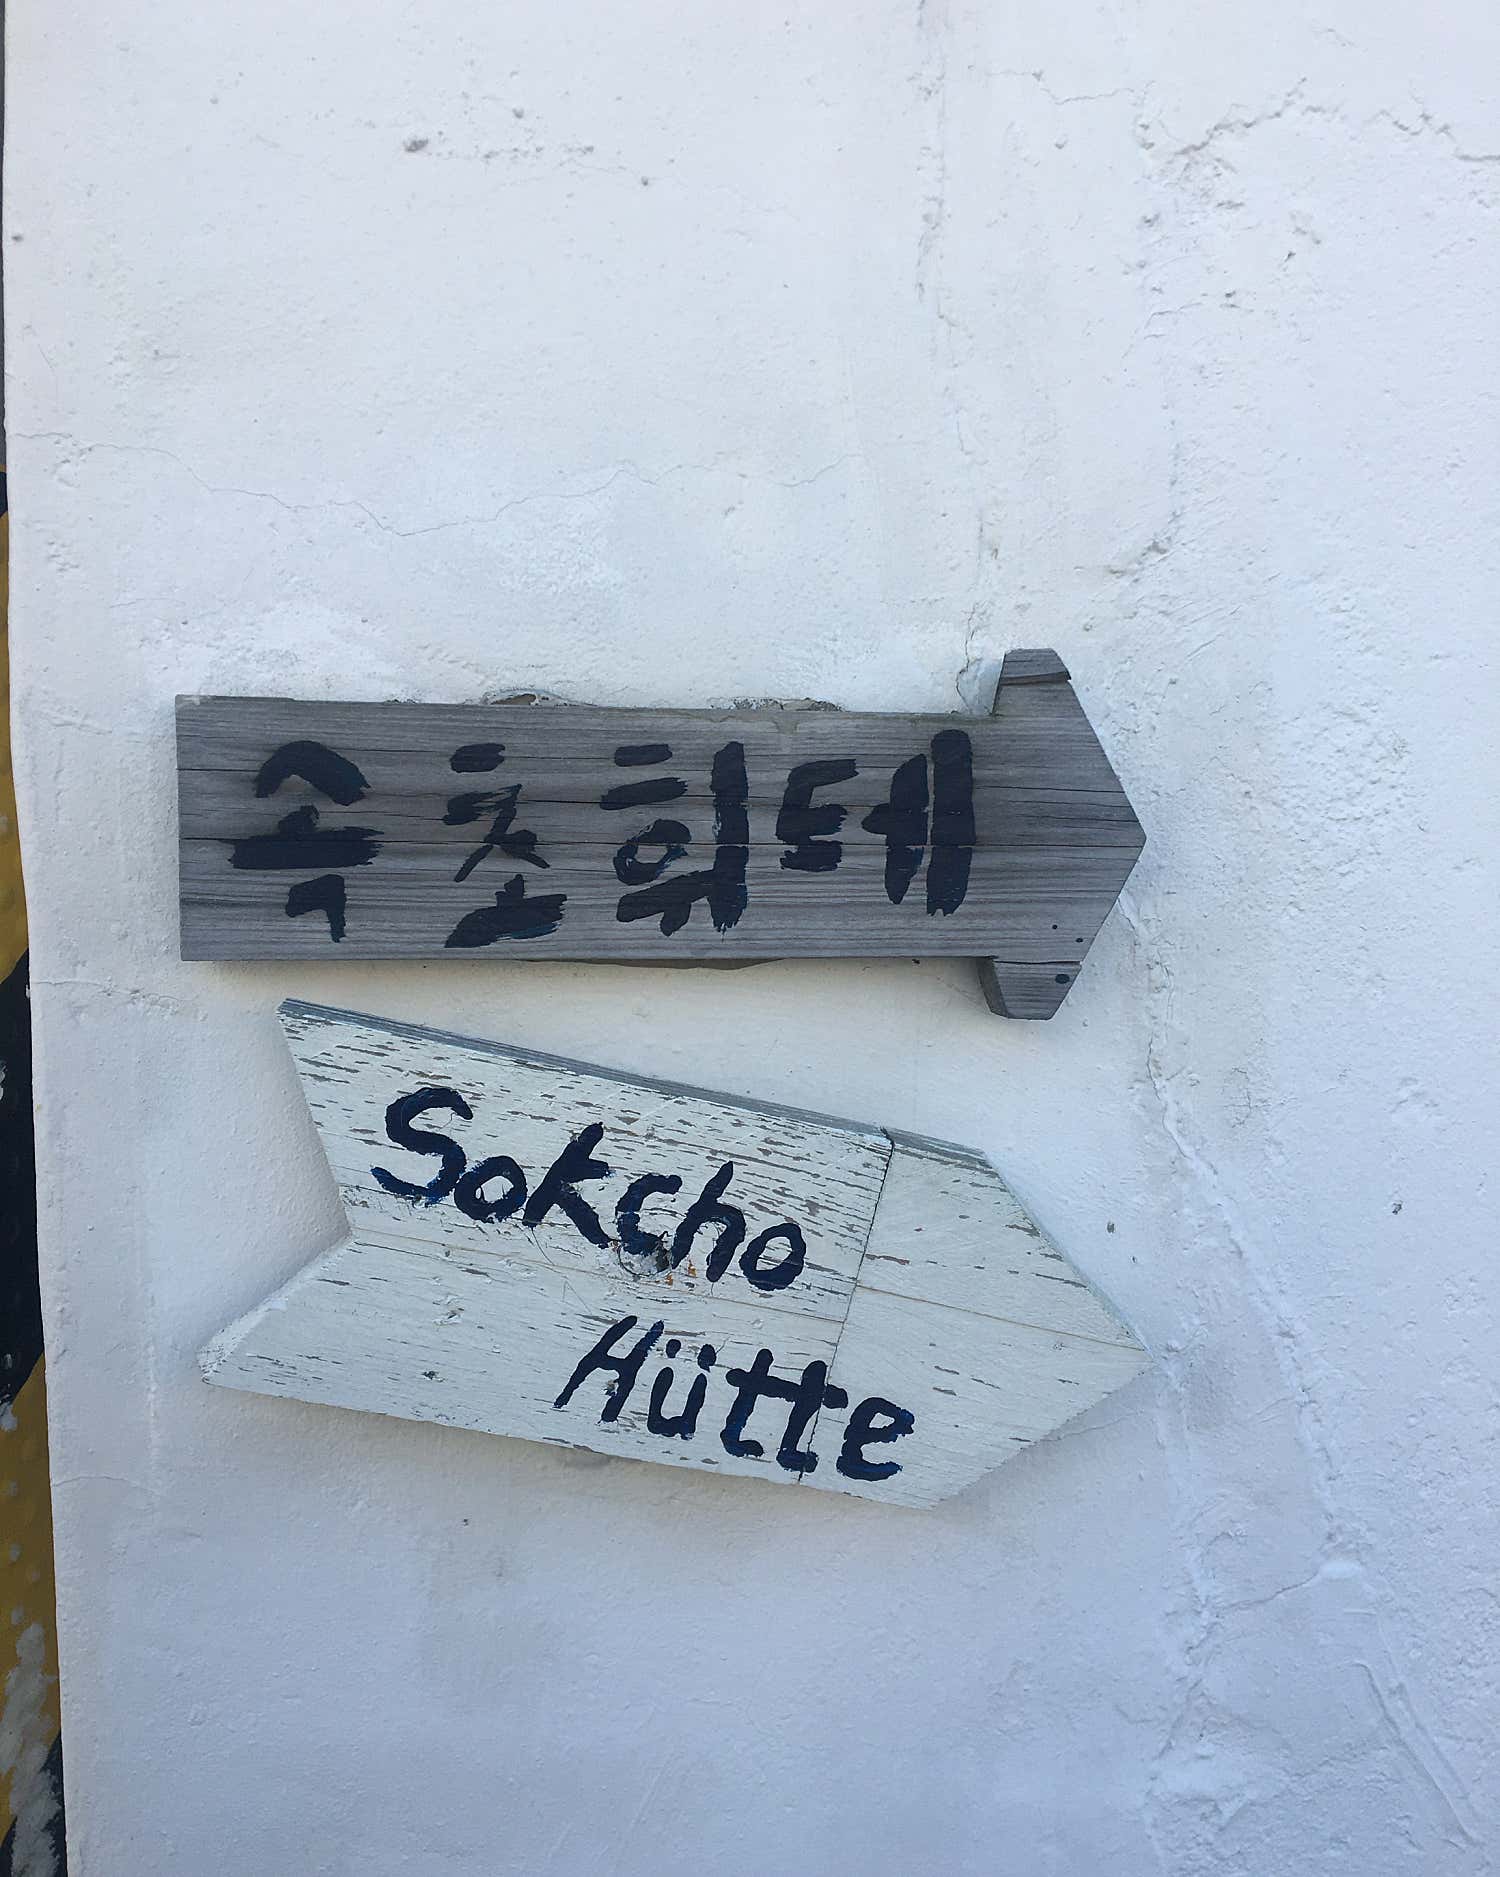 속초휘테
Sokcho
Hütte